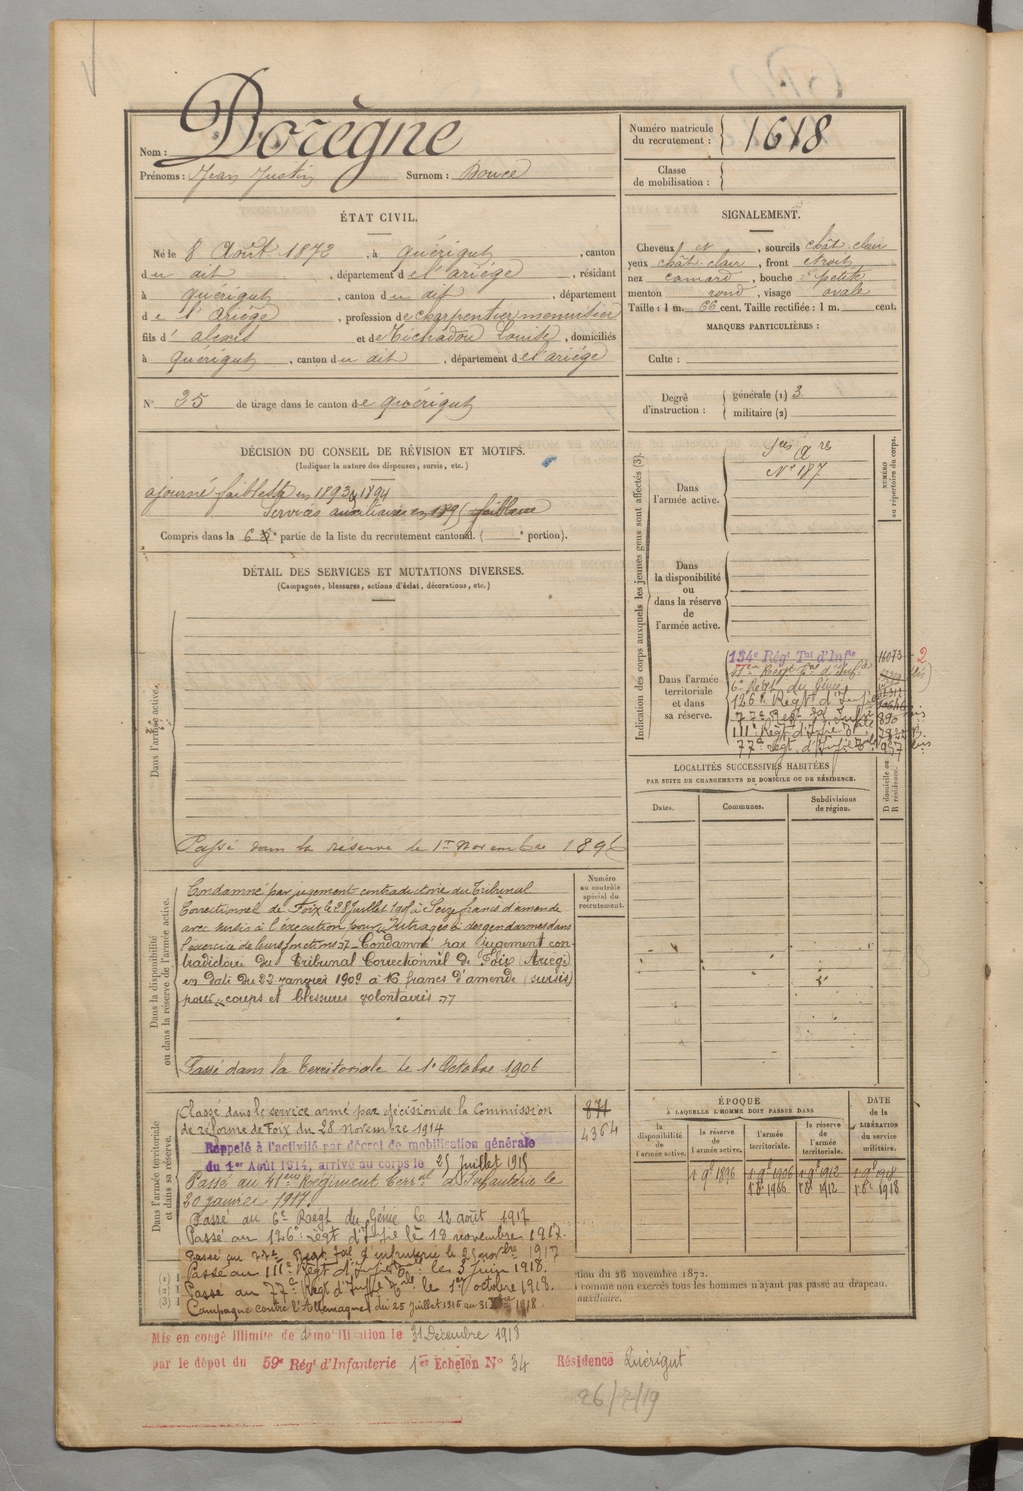 Dorègne
Nom :
Prénoms : Jean Justin Surnom : Bouce
Numéro matricule du recrutement : 1618
Classe de mobilisation :
ÉTAT CIVIL.
Né le 8 Août 1872, à Quérigut, canton
du dit, département de l'Ariège, résidant
à Quérigut, canton du dit, département
de l'Ariège, profession de charpentier menuisier
fils d' Alexis et de Tichadou Louise, domiciliés
à Quérigut, canton du dit, département de l'ariège
N° 25 de tirage dans le canton de Quérigut
SIGNALEMENT.
Cheveux N, sourcils chât. clair
yeux chât. clair, front étroit
nez camard, bouche petite
menton rond, visage ovale
Taille : 1 m. 66 cent. Taille rectifiée : 1 m. cent.
MARQUES PARTICULIÈRES :
Culte :
Degré d'instruction : générale (1) 3
militaire (2)
DÉCISION DU CONSEIL DE RÉVISION ET MOTIFS.
(Indiquer la nature des dispenses, sursis, etc.)
ajourné faiblesse en 1893 & 1894
Services auxiliaires en 1895 faiblesse
Compris dans la 6e partie de la liste du recrutement cantonal. ( e portion).
DÉTAIL DES SERVICES ET MUTATIONS DIVERSES.
(Campagnes, blessures, actions d'éclat, décorations, etc.)
Dans l'armée active.
Passé dans la réserve le 1er Novembre 1896
Dans la disponibilité
ou dans la réserve de l'armée active.
Condamné par jugement contradictoire du Tribunal
Correctionnel de Foix le 28 Juillet 1905 à Seize francs d'amende
avec sursis à l'exécution pour Outrages à des gendarmes dans
l'exercice de leurs fonctions Condamné par Jugement con-
tradictoire du Tribunal Correctionnel de Foix (Ariège)
en date du 22 janvier 1909 à 16 francs d'amende (sursis)
pour coups et blessures volontaires
Passé dans la Territoriale le 1er Octobre 1906
Numéro au contrôle spécial du recrutement.
874
4364
Dans l'armée territoriale
et dans sa réserve.
Classé dans le service armé par décision de la Commission
de réforme de Foix du 28 novembre 1914
Rappelé à l'activité par décret de mobilisation générale
du 1er Août 1914, arrivé au corps le 25 Juillet 1915
Passé au 41ème Régiment Terral d'Infanterie le
20 janvier 1917.
Passé au 6e Regt du Génie le 12 août 1917
Passé au 126e régt d'Infie le 18 novembre 1917.
Passé au 77e Regt Tal d'infanterie le 25 novbre 1917
Passé au 111e Régt d'Infie Tale le 3 Juin 1918.
Passé au 77e Régt d'Inffie Tale le 1er octobre 1918.
Campagne contre l'Allemagne du 25 Juillet 1915 au 31 Xbre 1918.
(1)
(2)
(3)
tion du 26 novembre 1872.
comme non exercés tous les hommes n'ayant pas passé au drapeau.
auxiliaire.
Indication des corps auxquels les jeunes gens sont affectés (3).
NUMÉRO au répertoire du corps.
Dans l'armée active.
Sces Ares
N° 187
Dans la disponibilité ou dans la réserve de l'armée active.
Dans l'armée territoriale et dans sa réserve.
134e Régt Tal d'Infie 16073 2
6e Régt du Génie
126e Régt d'Infie
77e Regt Tal Infie 890 bis
111e Régt d'Infie Tale
77e régt d'Infie Tale 957 bis
LOCALITÉS SUCCESSIVES HABITÉES
PAR SUITE DE CHANGEMENTS DE DOMICILE OU DE RÉSIDENCE.
Dates. Communes. Subdivisions de région. D domicile ou R résidence.
ÉPOQUE
À LAQUELLE L'HOMME DOIT PASSER DANS
DATE de la LIBÉRATION du service militaire.
la disponibilité de l'armée active. la réserve de l'armée active. l'armée territoriale. la réserve de l'armée territoriale.
1 9bre 1896 1 9bre 1906 1 9bre 1912 1 9bre 1918
1 8bre 1906 1 8bre 1912 1 8bre 1918
Mis en congé illimité de démobilisation le 31 Décembre 1918
par le dépot du 59e Régt d'Infanterie 1er Echelon N° 34 Résidence Quérigut
26/2/19